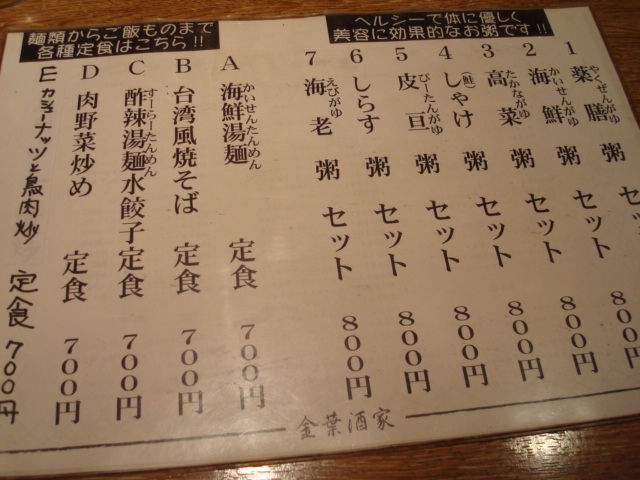 ヘルシーで体に優しく
美容に効果的なお粥です!!
1 薬膳粥セット 800円
やくぜんがゆ
2 海鮮粥セット 800円
かいせんがゆ
3 高菜粥セット 800円
たかながゆ
4 しゃけ粥セット 800円
(鮭)
5 皮亘粥セット 800円
ぴーたんがゆ
6 しらす粥セット 800円
7 海老粥セット 800円
えびがゆ
麺類からご飯ものまで
各種定食はこちら!!
A 海鮮湯麺 定食 700円
かいせんたんめん
B 台湾風焼そば 定食 700円
C 酢辣湯麺水餃子定食 700円
すーらーたんめん
D 肉野菜炒め 定食 700円
E カシューナッツと鳥肉炒 定食 700円
金葉酒家